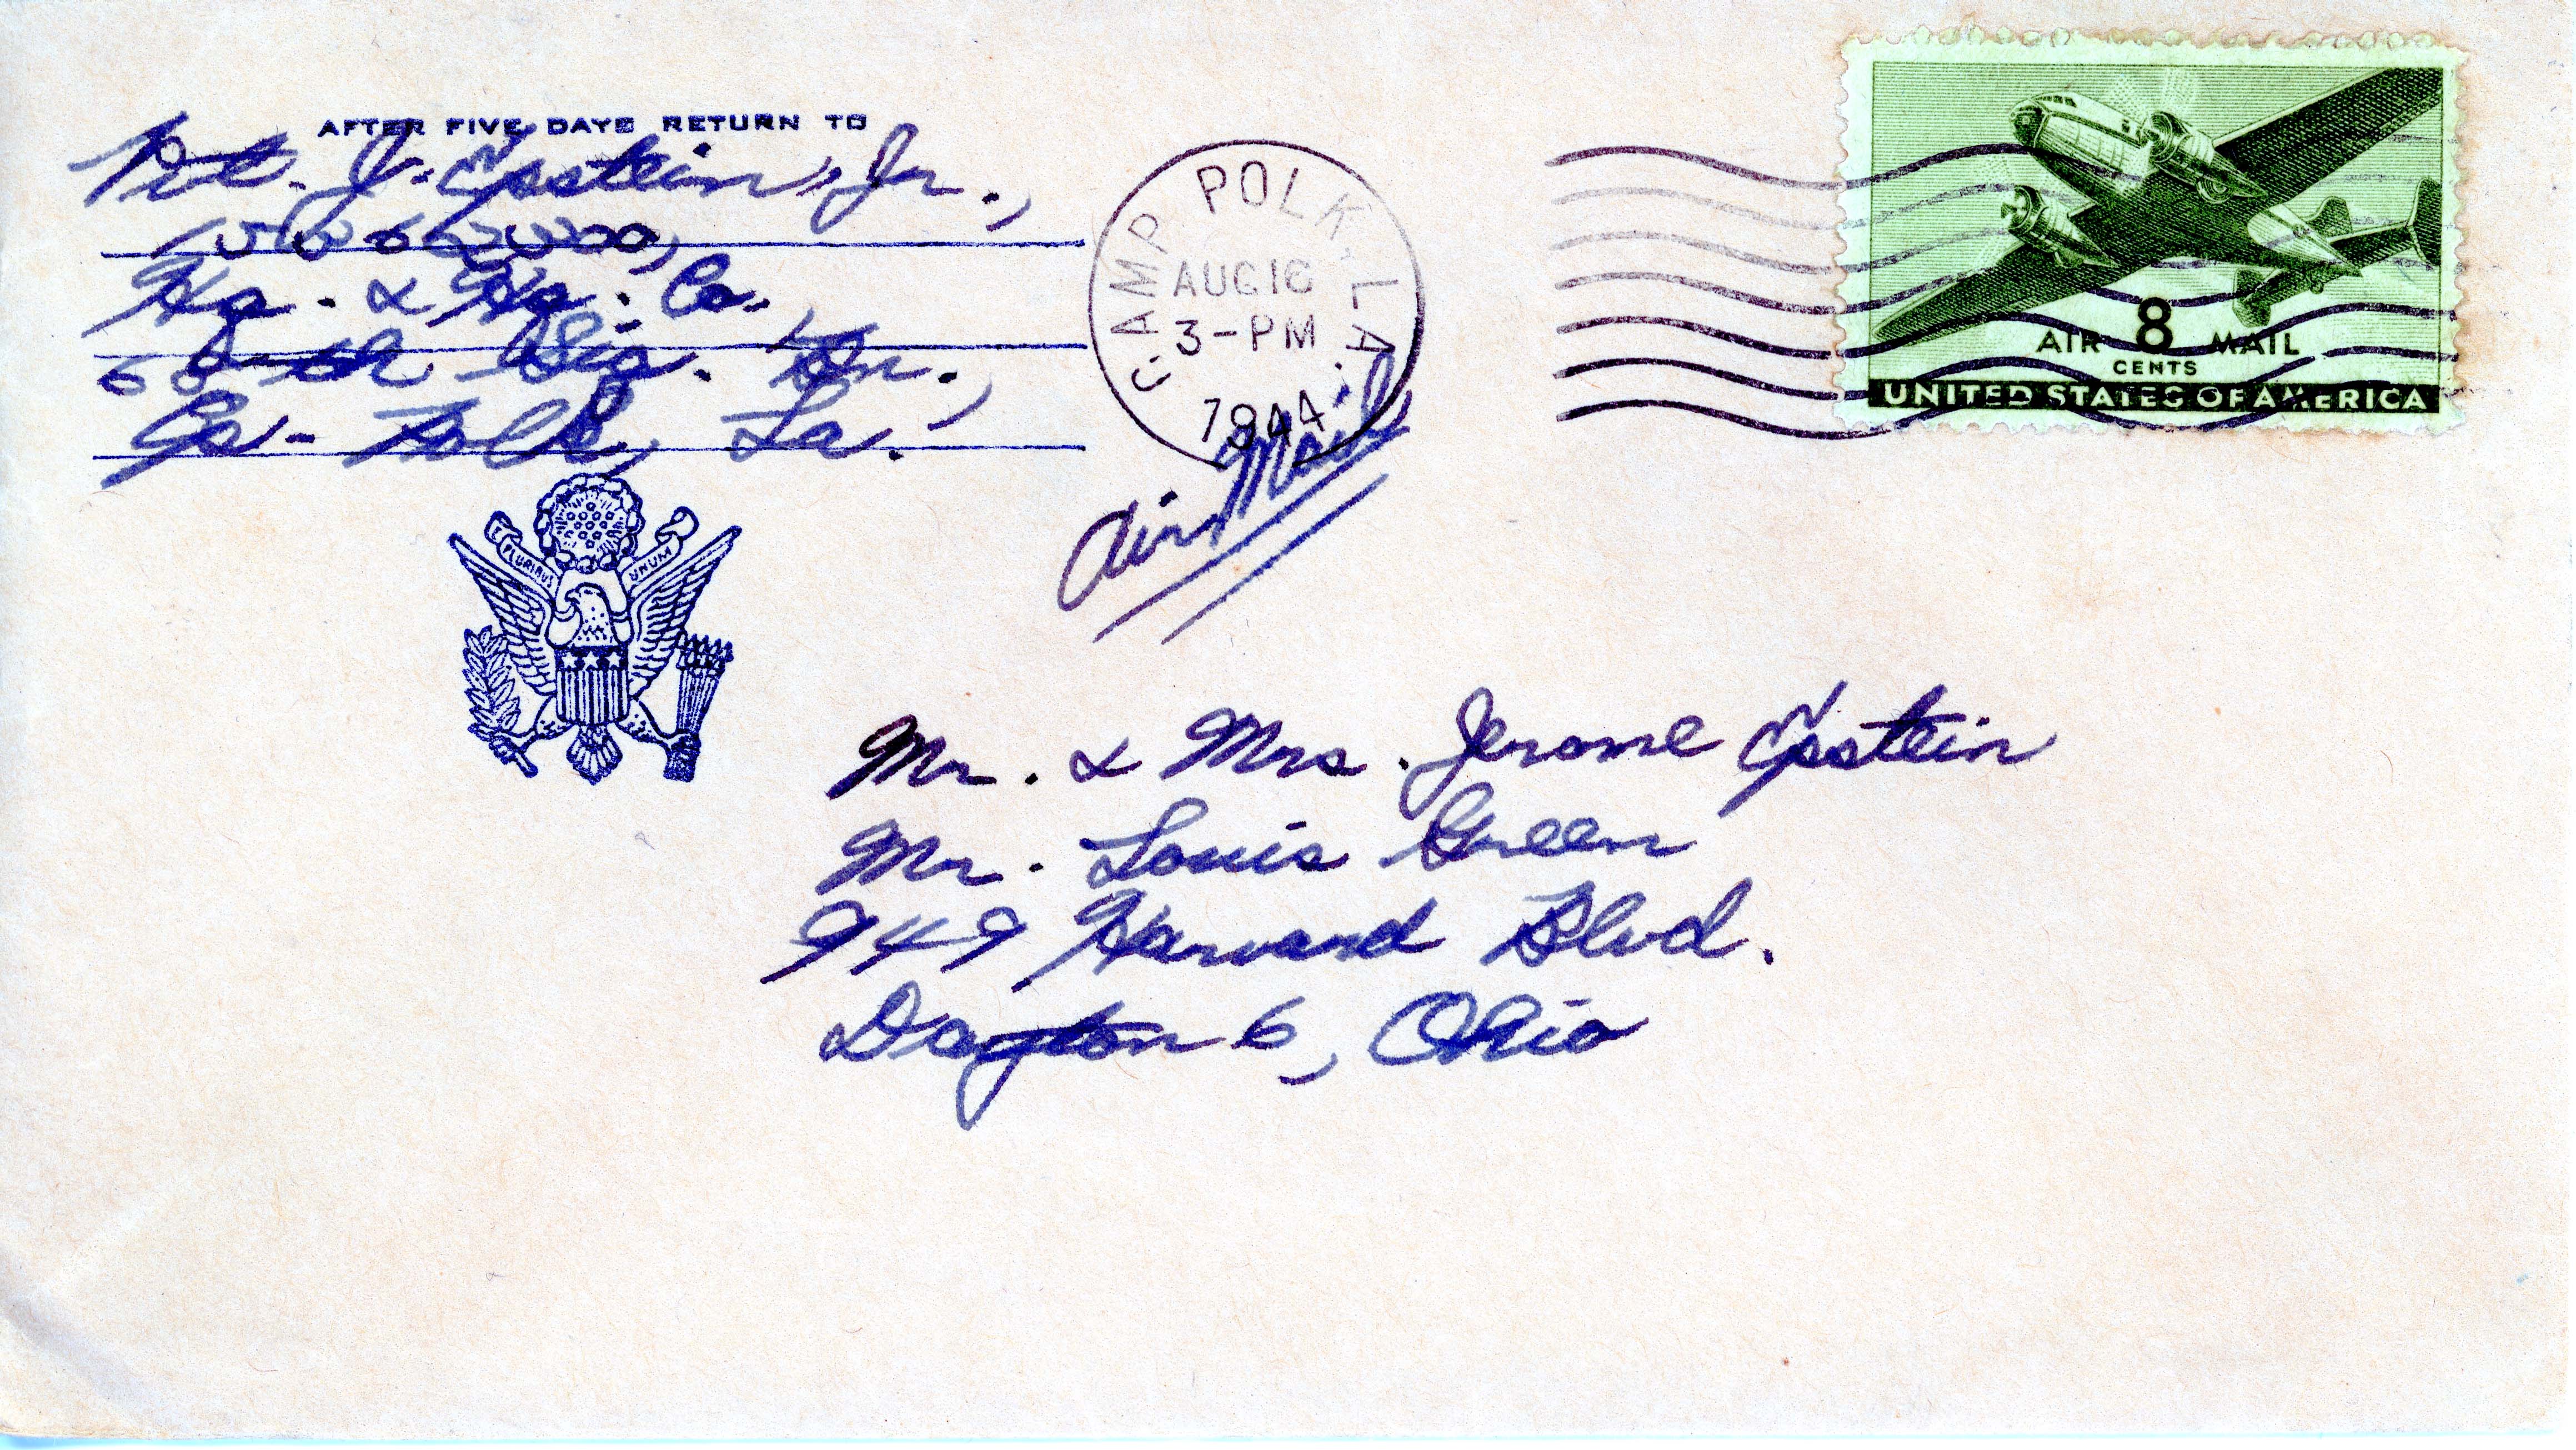 AFTER FIVE DAYS RETURN TO
Pvt. J. Epstein, Jr.,
Hq. & Hq. Co.
Sig. Bn.,
Cp. Polk, La.
CAMP POLK, LA.
AUG 16
3-PM
1944
Air Mail
8
AIR MAIL
CENTS
UNITED STATES OF AMERICA
PLURIBUS UNUM
Mr. & Mrs. Jerome Epstein
Mr. Louis Green
949 Harvard Blvd.
Dayton 6, Ohio